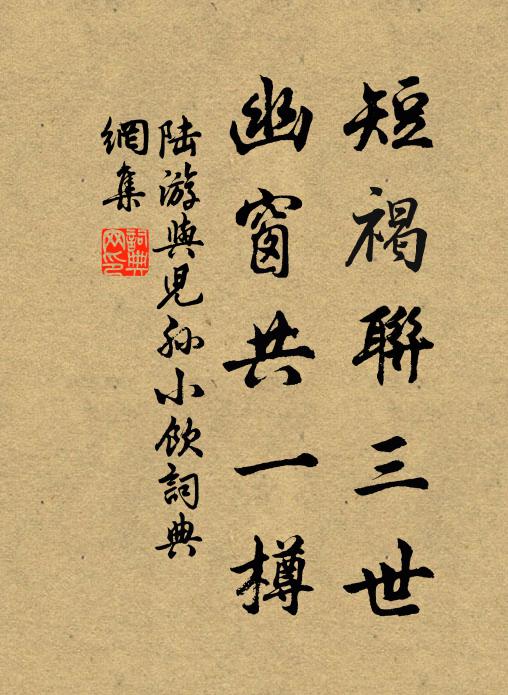 短褐聯三世
幽窗共一樽
陸游與兒孫小飲詞典
網集
詞典網印